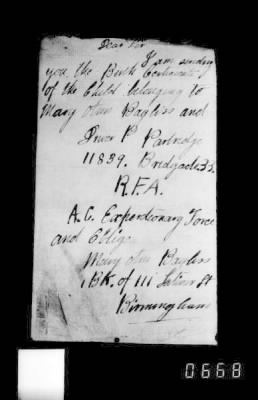 Dear Sir
I am sending
you the Birth Certificate
of the Child belonging to
Mary Ann Bayliss and
Driver P Partridge
11839. Bridgade 33.
R.F.A.
A.C. Experdionary Force
and Oblige
Mary Ann Bayliss
1 BK. of 111 St
Birmingham
0668